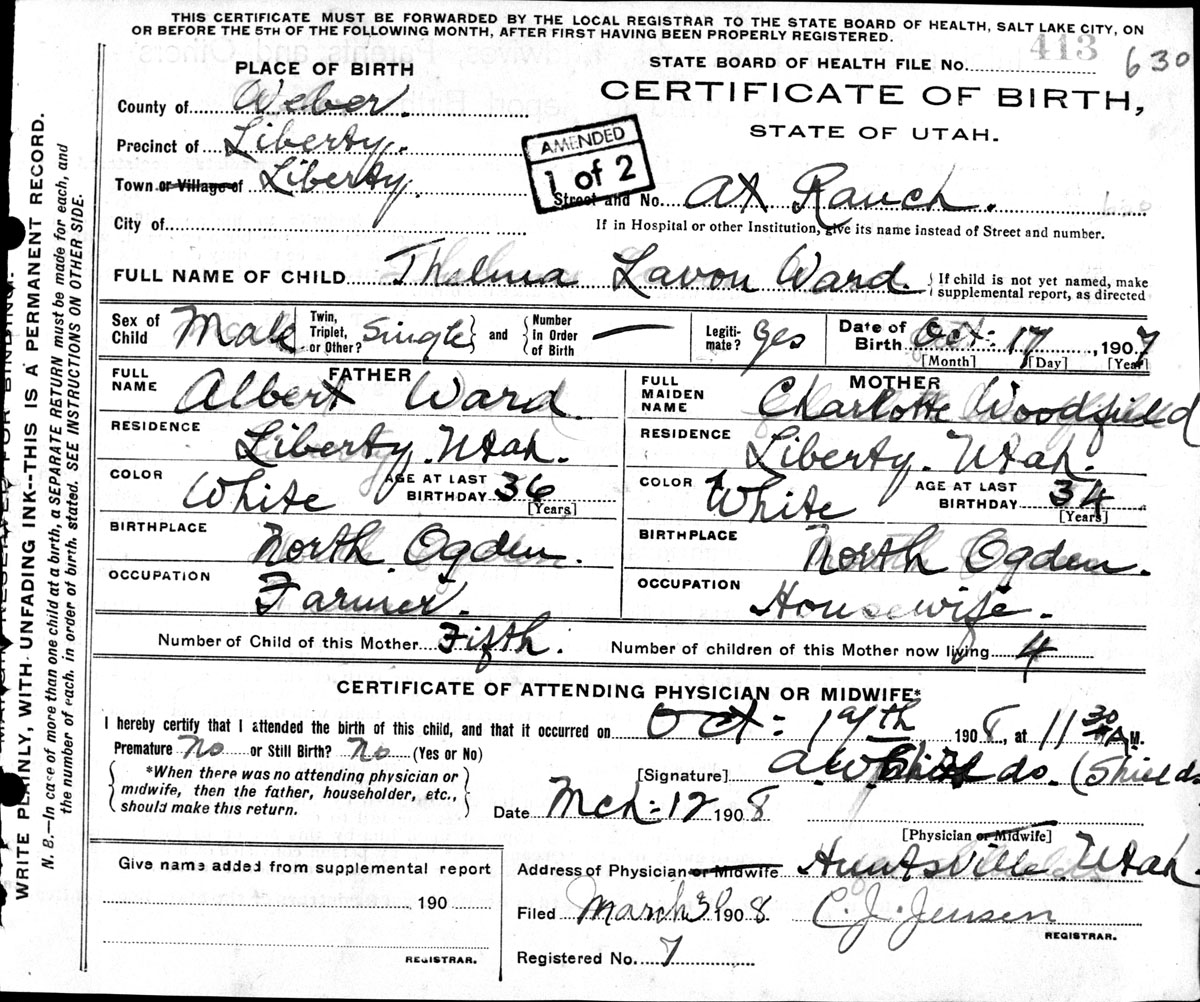 THIS CERTIFICATE MUST BE FORWARDED BY THE LOCAL REGISTRAR TO THE STATE BOARD OF HEALTH, SALT LAKE CITY, ON
OR BEFORE THE 5TH OF THE FOLLOWING MONTH, AFTER FIRST HAVING BEEN PROPERLY REGISTERED.
STATE BOARD OF HEALTH FILE No. 413 630
PLACE OF BIRTH
CERTIFICATE OF BIRTH,
STATE OF UTAH.
County of Weber.
Precinct of Liberty.
Town or Village of Liberty.
AMENDED
1 of 2
Street and No. At Ranch.
City of
If in Hospital or other Institution, give its name instead of Street and number.
FULL NAME OF CHILD Thelma Lavon Ward. If child is not yet named, make
supplemental report, as directed
Sex of Child Male Twin, Triplet, or Other? Single and Number in Order of Birth — Legiti-mate? Yes Date of Birth Oct. 17, 1907
[Month] [Day] [Year]
FATHER
FULL NAME Albert Ward.
RESIDENCE Liberty. Utah.
COLOR White AGE AT LAST BIRTHDAY 36 [Years]
BIRTHPLACE North Ogden.
OCCUPATION Farmer.
MOTHER
FULL MAIDEN NAME Charlotte Woodfield
RESIDENCE Liberty. Utah.
COLOR White AGE AT LAST BIRTHDAY 34 [Years]
BIRTHPLACE North Ogden.
OCCUPATION Housewife.
Number of Child of this Mother Fifth. Number of children of this Mother now living 4
CERTIFICATE OF ATTENDING PHYSICIAN OR MIDWIFE*
I hereby certify that I attended the birth of this child, and that it occurred on Oct: 17th 1908, at 11 30 A.M.
Premature No or Still Birth? No (Yes or No)
*When there was no attending physician or
midwife, then the father, householder, etc.,
should make this return.
[Signature] (Shields
Date Mch: 12 1908
[Physician or Midwife]
Address of Physician or Midwife Huntsville Utah.
Filed March 31 1908 C. J. Jensen
REGISTRAR.
Registered No. 7
Give name added from supplemental report
190
REGISTRAR.
WRITE PLAINLY, WITH UNFADING INK--THIS IS A PERMANENT RECORD.
N. B.—In case of more than one child at a birth, a SEPARATE RETURN must be made for each, and
the number of each, in order of birth, stated. SEE INSTRUCTIONS ON OTHER SIDE.